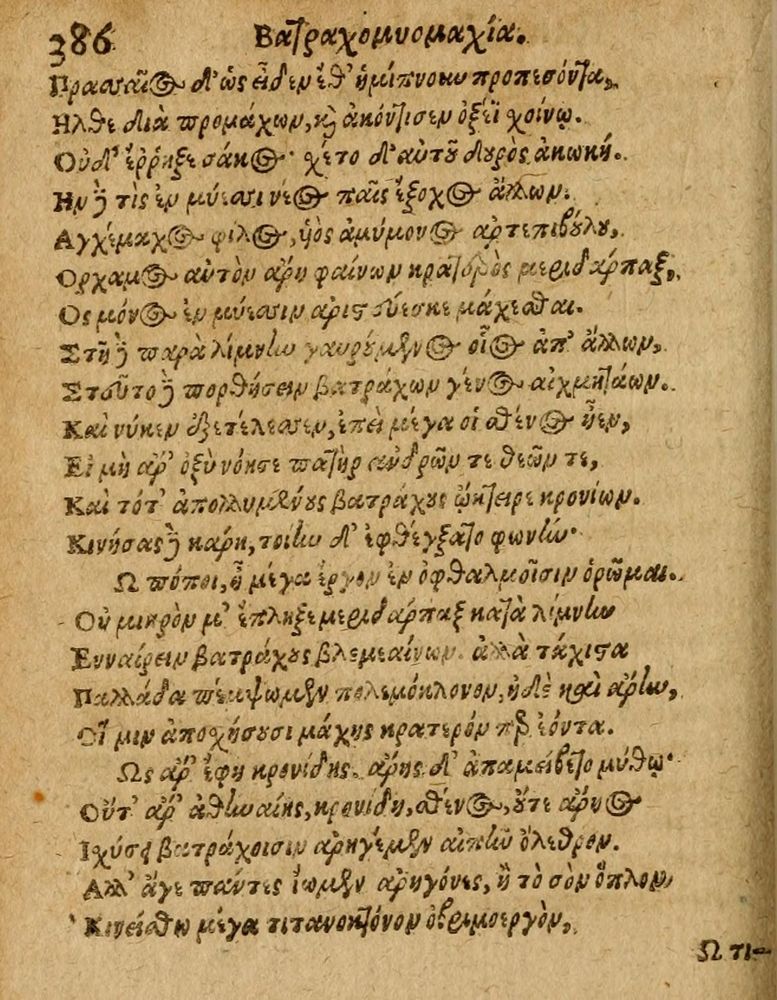 386 Βατραχομυομαχία.
Πρασσαῖος δ' ὡς εἶδεν ἔθ' ἡμίπνοιω προπεσόντα,
Ηλθε διὰ προμάχων, καὶ ἀκόντισεν ὀξέϊ χοίνῳ.
Οὐδ' ἔῤῥηξε σάκος· χέτο δ' αὐτοῦ δουρὸς ἀκωκή.
Ην δέ τὶς ἐν μύεσσι νέος παῖς ἔξοχος ἄλλων.
Αγχέμαχος φίλος, υἱὸς ἀμύμονος ἀρτεπιβούλου,
Ορχαμος αὐτὸν ἄρη φαίνων κρατερὸς μεριδάρπαξ,
Ος μόνος ἐν μύεσσιν ἀριστεύεσκε μάχεσθαι.
Στῆ δὲ παρὰ λίμνην γαυρούμενος οἶος ἀπ' ἄλλων,
Στεῦτο δὲ πορθήσειν βατράχων γένος αἰχμητάων.
Καὶ νύκεν ἐξετέλεσσεν, ἐπεὶ μέγα οἱ σθένος ἦεν,
Εἰ μὴ ἄρ' ὀξὺ νόησε πατὴρ ἀνδρῶν τε θεῶν τε,
Καὶ τότ' ἀπολλυμένους βατράχους ᾤκτειρε κρονίων.
Κινήσας δὲ κάρη, τοίην δ' ἐφθέγξατο φωνήν·
Ω πόποι, ἦ μέγα ἔργον ἐν ὀφθαλμοῖσιν ὁρῶμαι.
Οὐ μικρὸν μ' ἔπληξε μεριδάρπαξ κατὰ λίμνην
Ενναίρειν βατράχους βλεμεαίνων. ἀλλὰ τάχιστα
Παλλάδα πέμψωμεν πολεμόκλονον, ἠδὲ καὶ ἄρην,
Οἵ μιν ἀποσχήσουσι μάχης κρατερόν περ ἐόντα.
Ως ἄρ' ἔφη κρονίδης. ἄρης δ' ἀπαμείβετο μύθῳ·
Οὔτ' ἄρ' ἀθηναίης, κρονίδη, σθένος, οὔτε ἄρηος
Ιχύσει βατράχοισιν ἀρηγέμεν αἰπὺν ὄλεθρον.
Αλλ' ἄγε πάντες ἴωμεν ἀρηγόνες, ἢ τὸ σὸν ὅπλον
Κινείσθω μέγα τιτανοκτόνον ὀβριμοεργὸν,
Ω τι-